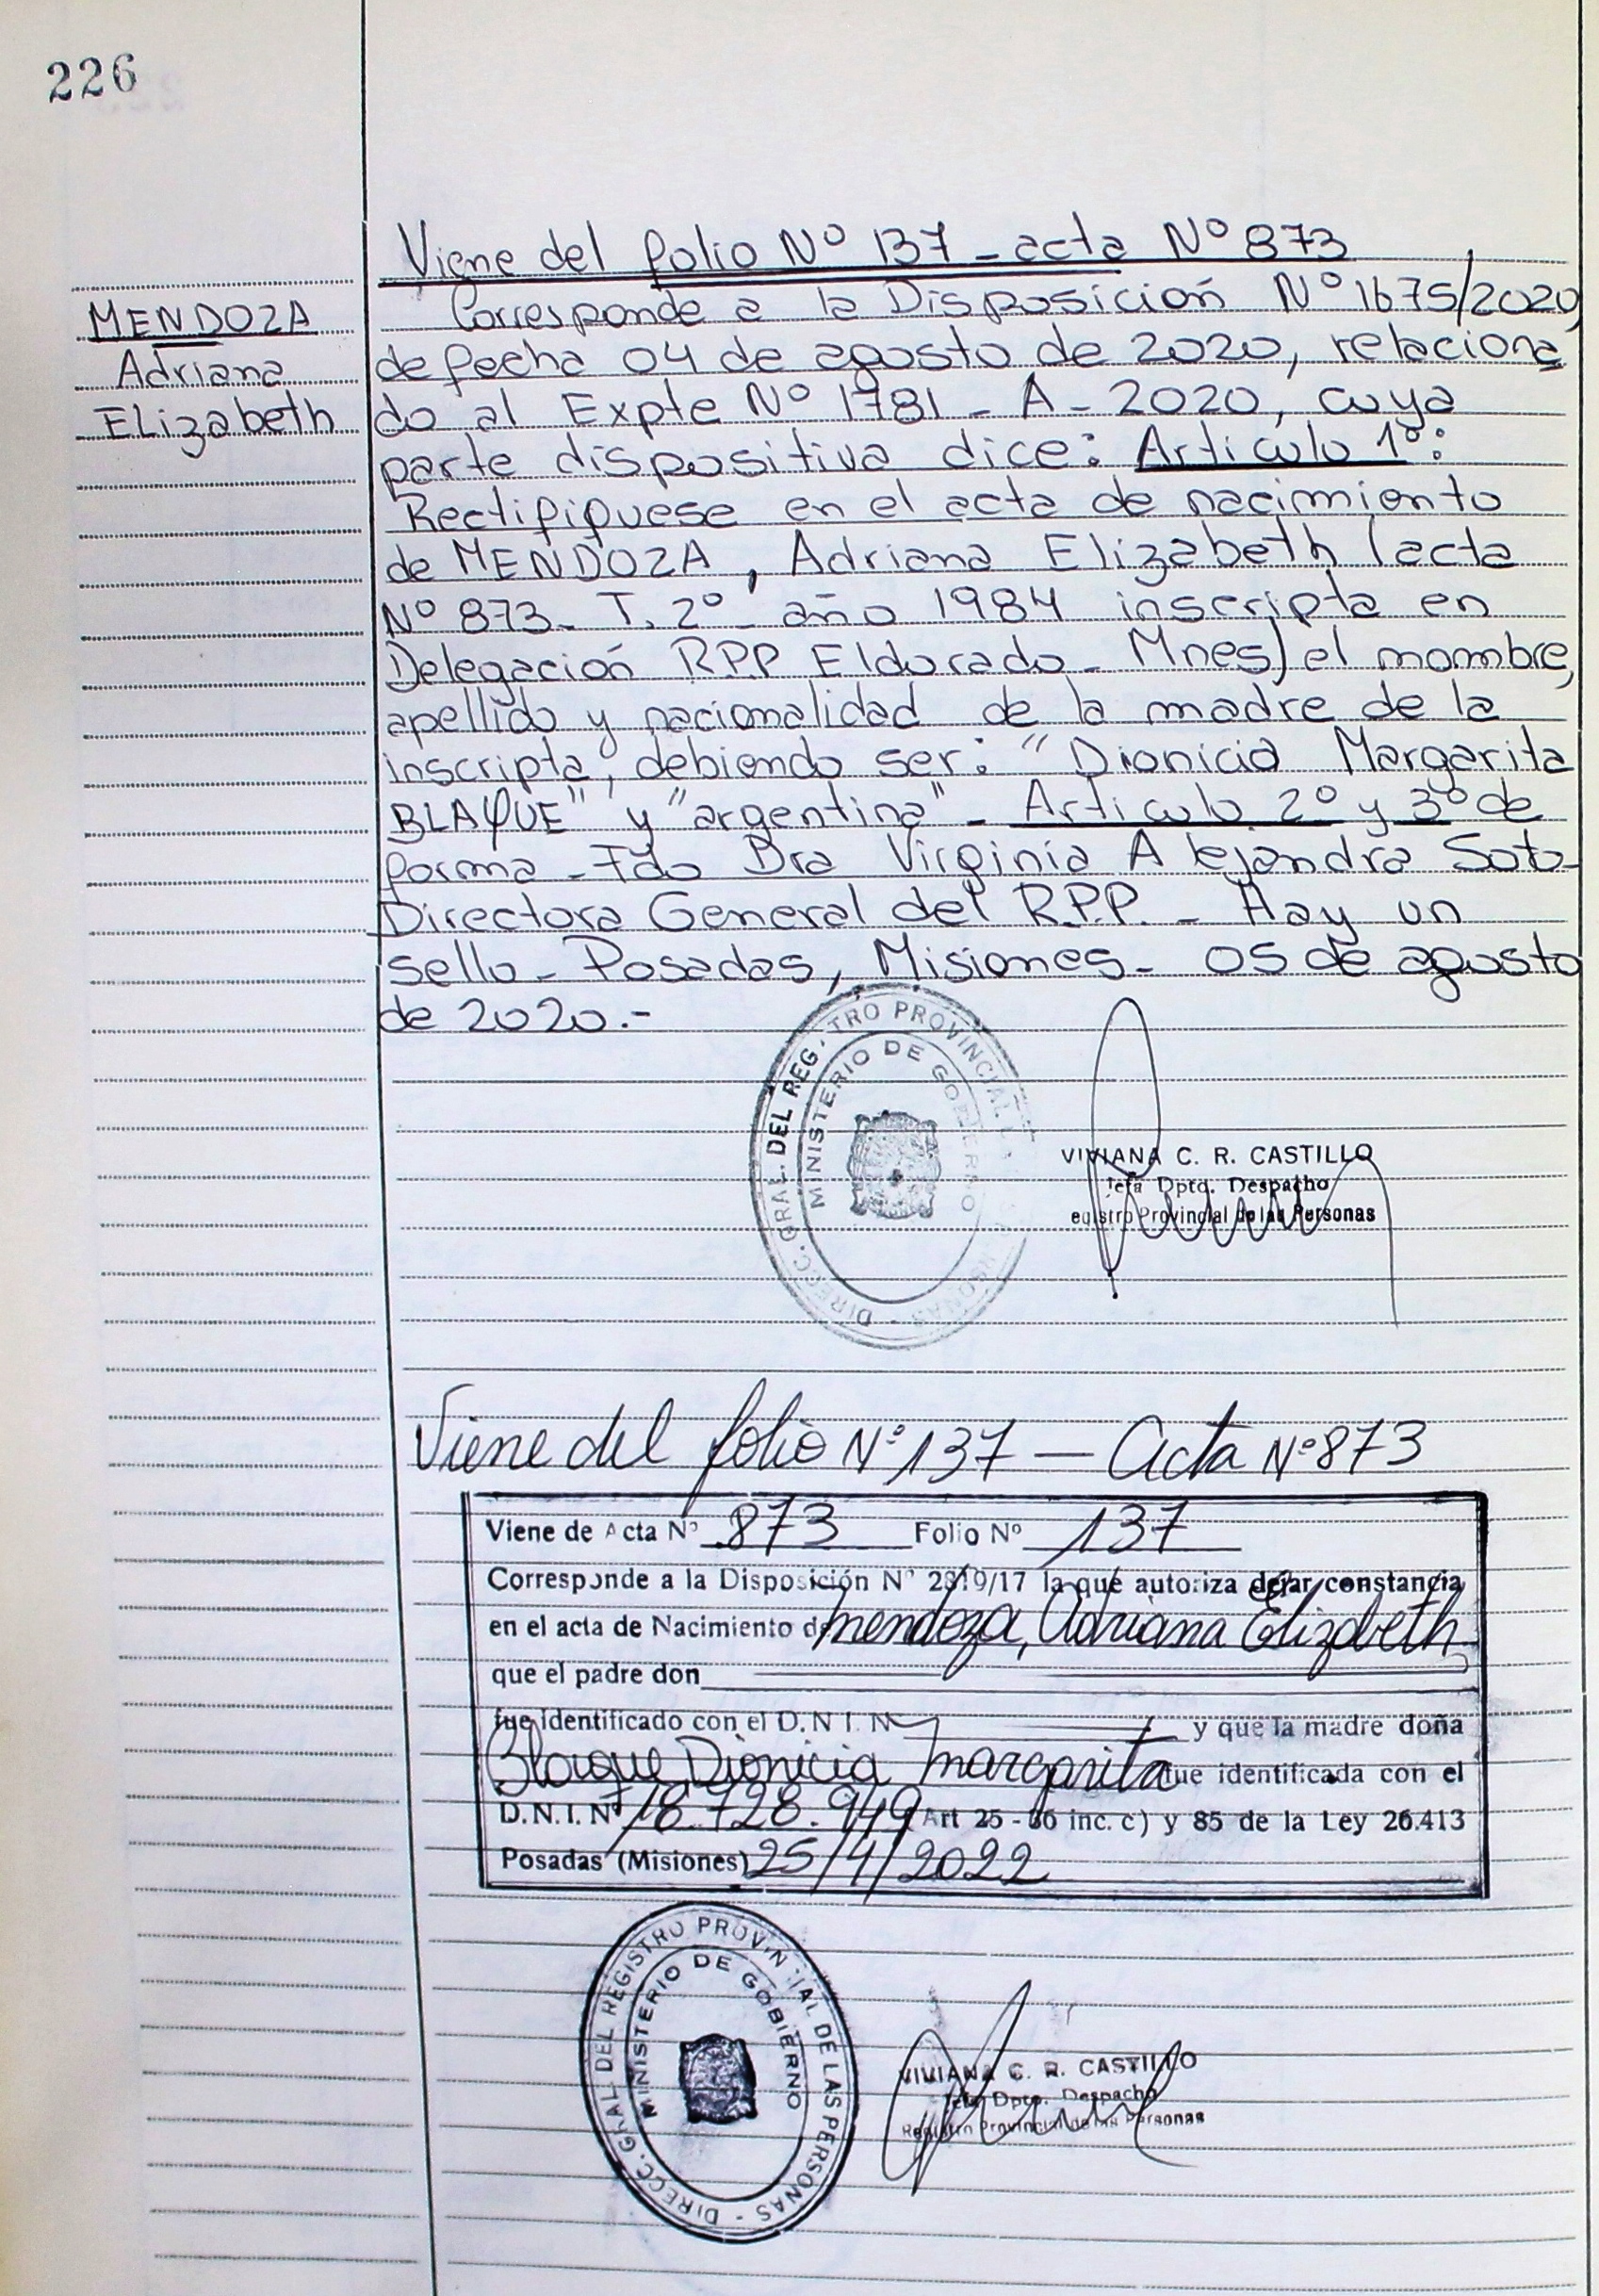 226
Viene del folio Nº 137 - acta Nº 873
MENDOZA
Adriana
Elizabeth
Corresponde a la Disposición Nº 1675/2020
de fecha 04 de agosto de 2020, relaciona
do al Expte Nº 1781 - A - 2020, cuya
parte dispositiva dice: Artículo 1º:
Rectifíquese en el acta de nacimiento
de MENDOZA, Adriana Elizabeth (acta
Nº 873 - T. 2º - año 1984 inscripta en
Delegación RPP Eldorado - Mnes) el nombre,
apellido y nacionalidad de la madre de la
inscripta, debiendo ser: "Dionicia Margarita
BLAQUE" y "argentina" - Artículo 2º y 3º de
forma - Fdo Dra Virginia Alejandra Soto -
Directora General del R.P.P. - Hay un
sello - Posadas, Misiones - 05 de agosto
de 2020.-
DIRECC. GRAL. DEL REG TRO PROVINCIAL
MINISTERIO DE GOBIERNO
VIVIANA C. R. CASTILLO
Jefa Dpto. Despacho
egistro Provincial de las Personas
Viene del folio Nº 137 — Acta Nº 873
Viene de Acta Nº 873 Folio Nº 137
Corresponde a la Disposición Nº 2819/17 la que autoriza dejar constancia
en el acta de Nacimiento de Mendoza, Adriana Elizabeth
que el padre don
fue identificado con el D.N.I. Nº y que la madre doña
Blaque Dionicia Margarita fue identificada con el
D.N.I. Nº 18.728.949 (Art 25 - 36 inc. c) y 85 de la Ley 26.413
Posadas (Misiones) 25/4/2022
DIRECC. GRAL. DEL REGISTRO PROVINCIAL DE LAS PERSONAS -
MINISTERIO DE GOBIERNO
VIVIANA C. R. CASTILLO
Jefa Dpto. Despacho
Registro Provincial de las Personas